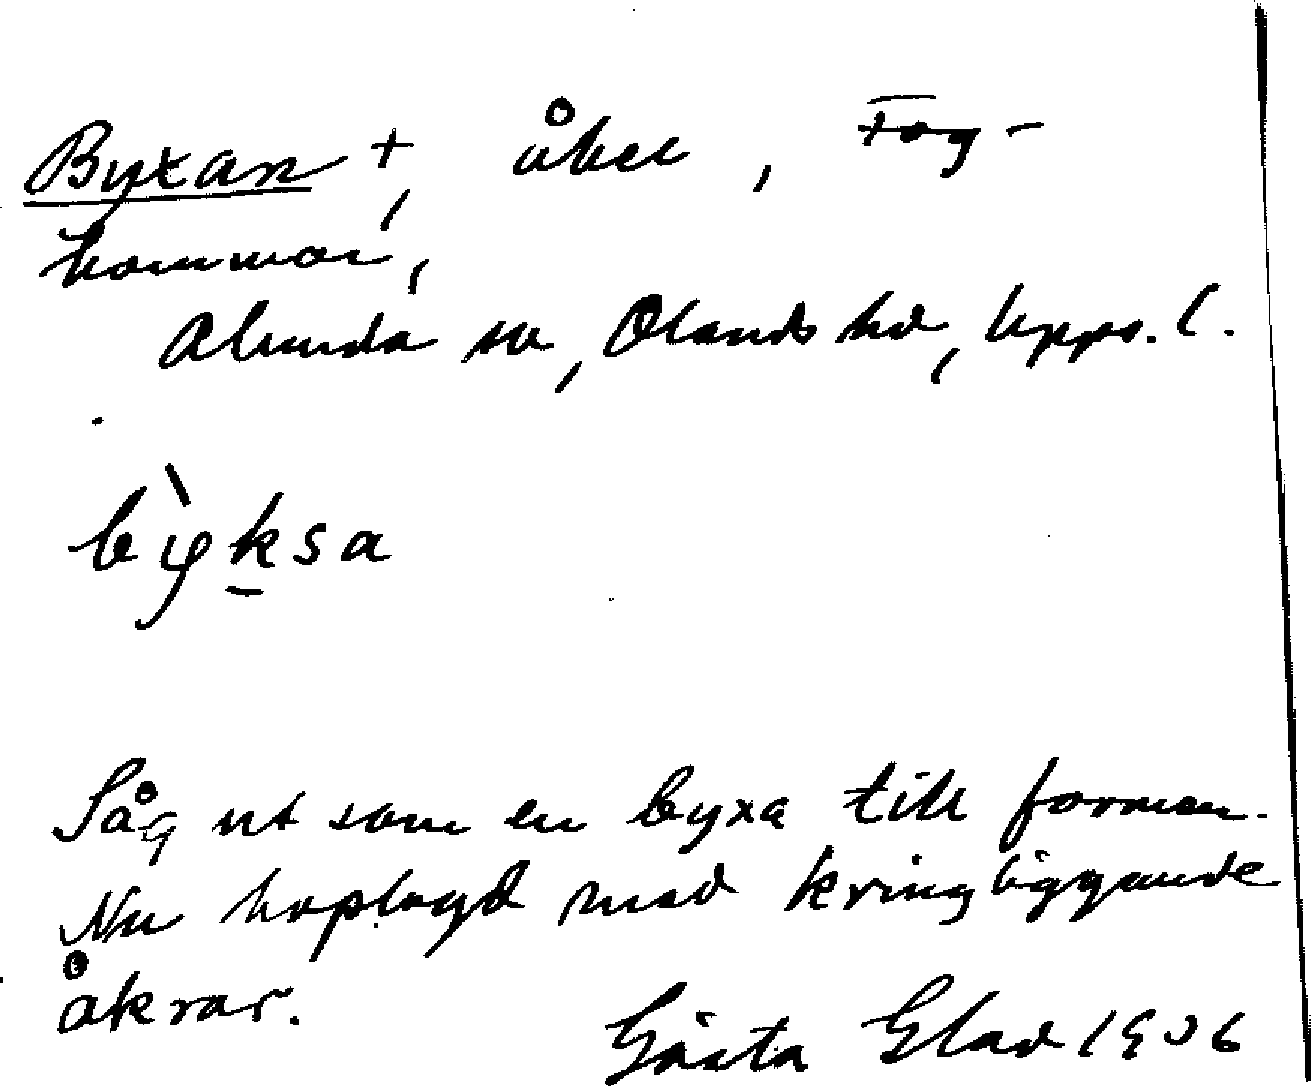 Byxan +, åker, Tog-
hammar,
Alunda sn, Olands hd, Upps. l.
bỳksa
Såg ut som en byxa till formen.
Nu hoplagd med kringliggande
åkrar.
Gösta Glad 1936